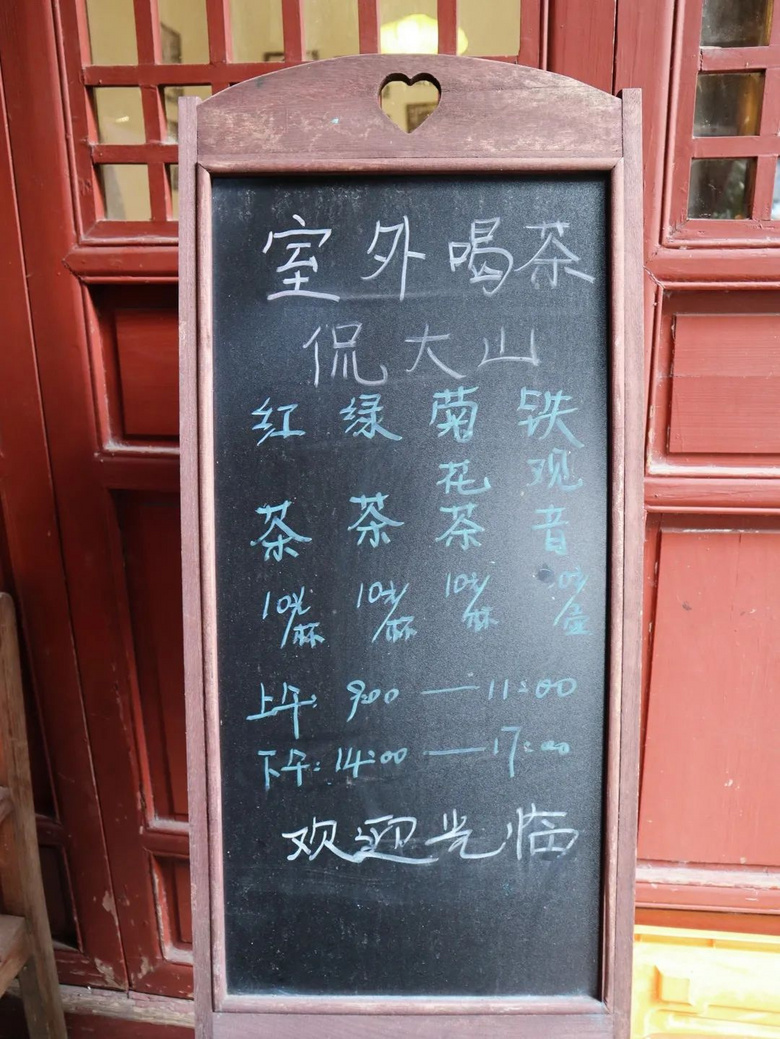 室外喝茶
侃大山
红茶 10元/杯
绿茶 10元/杯
菊花茶 10元/杯
铁观音 /壶
上午: 9:00 — 11:00
下午: 14:00 — 17:00
欢迎光临